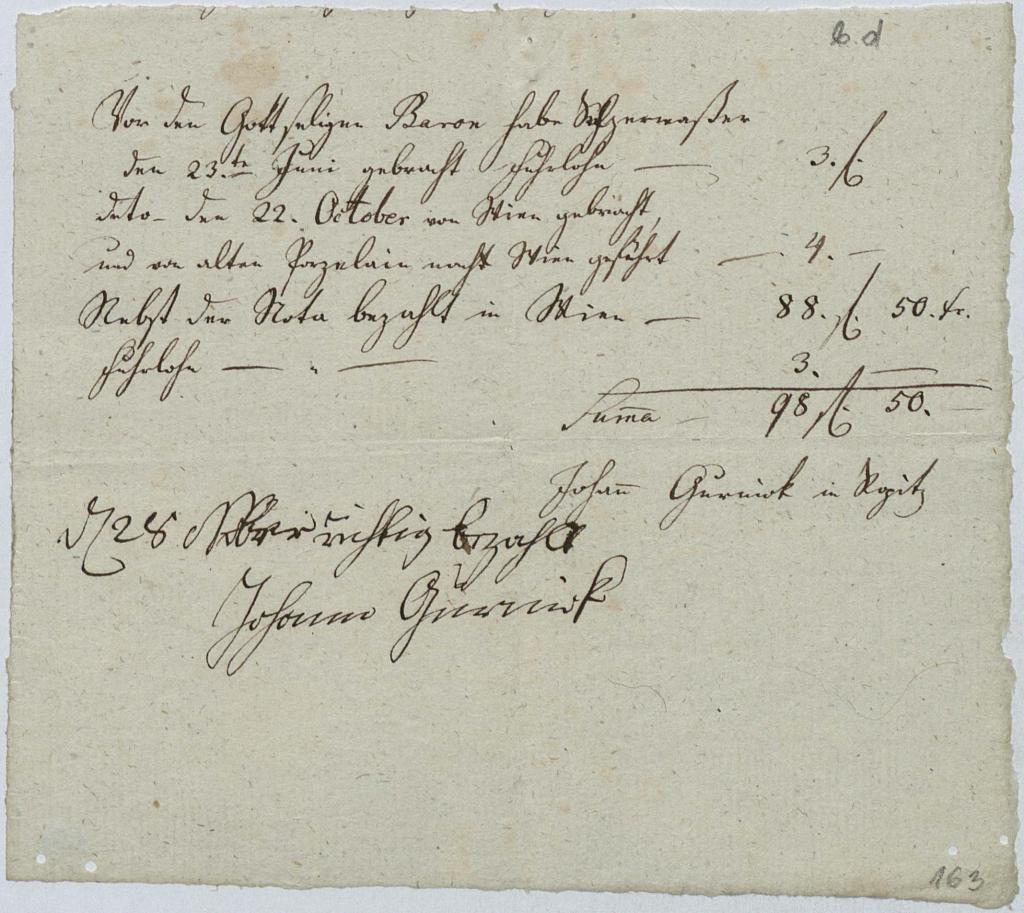 6.d
Vor den Gottseligen Baron habe Selzerwaßer
den 23.te Juni gebracht Fuhrlohn — 3. f.
deto - den 22. October von Wien gebracht,
und von alten Porzelain nacht Wien geführt — 4. —
Nebst der Nota bezahlt in Wien — 88. f. 50. kr.
Fuhrlohn — " — 3. —
Summa — 98 f. 50. —
Johann Gurnick in
28 richtig bezahlt
Johann Gurnick
163